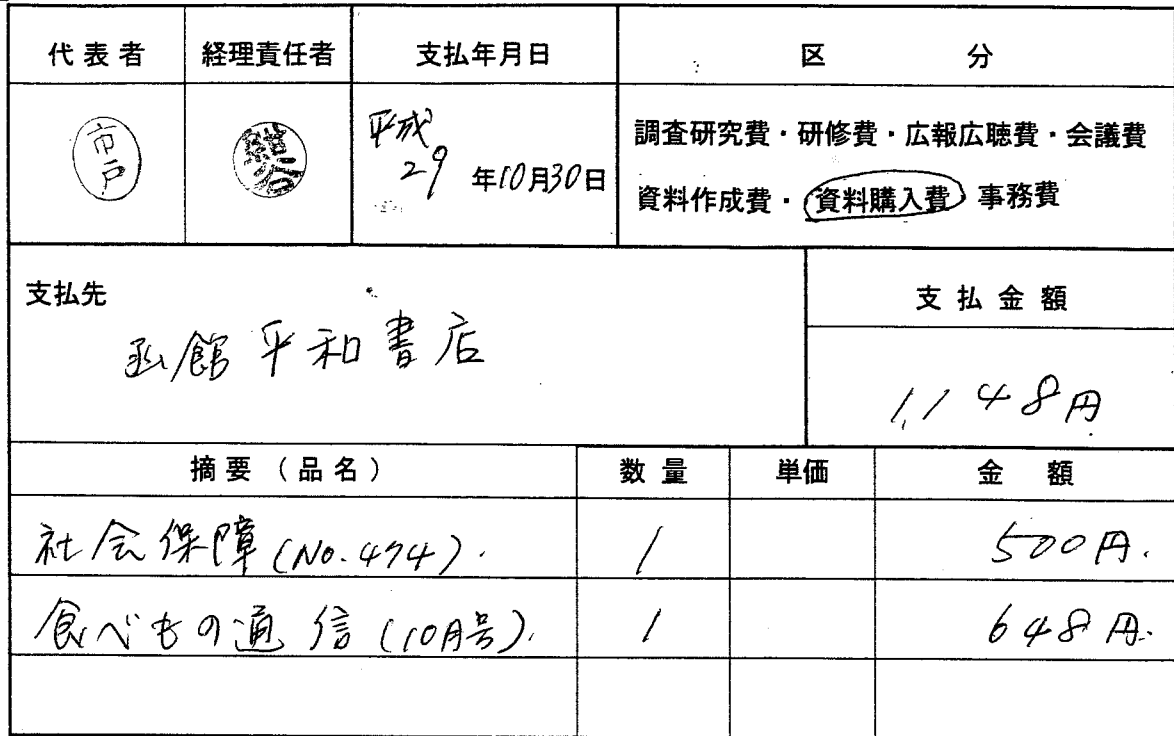 代表者 経理責任者 支払年月日 区 分
市戸 熊谷 平成29年10月30日
調査研究費・研修費・広報広聴費・会議費
資料作成費・資料購入費・事務費
支払先 支払金額
函館平和書店
1,148円
摘要(品名) 数量 単価 金額
社会保障(No.474). 1 500円.
食べもの通信(10月号). 1 648円.